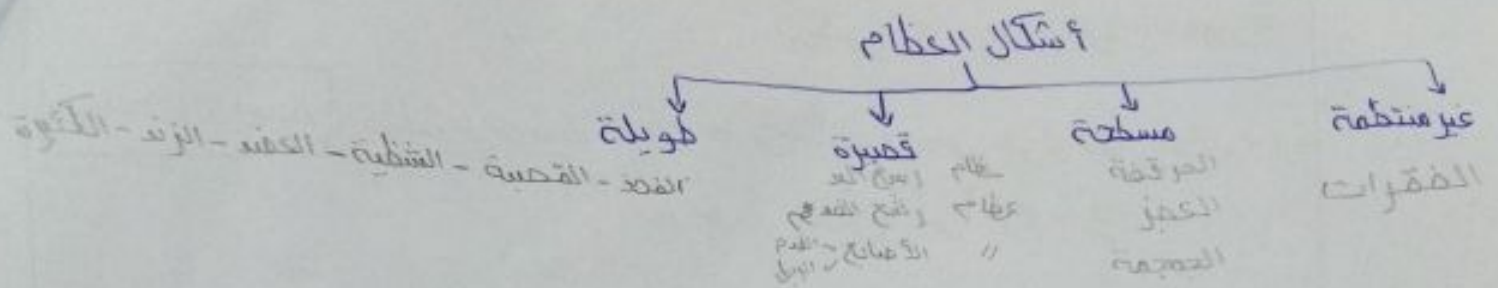 أشكال العظام
غير منتظمة
الفقرات
مسطحة
الحرقفة
العجز
الجمجمة
قصيرة
عظام رسغ اليد
عظام راسغ القدم
" الأصابع - القدم
اليد
طويلة
الفخذ - القصبة - الشظية - العضد - الزند - الكعبرة